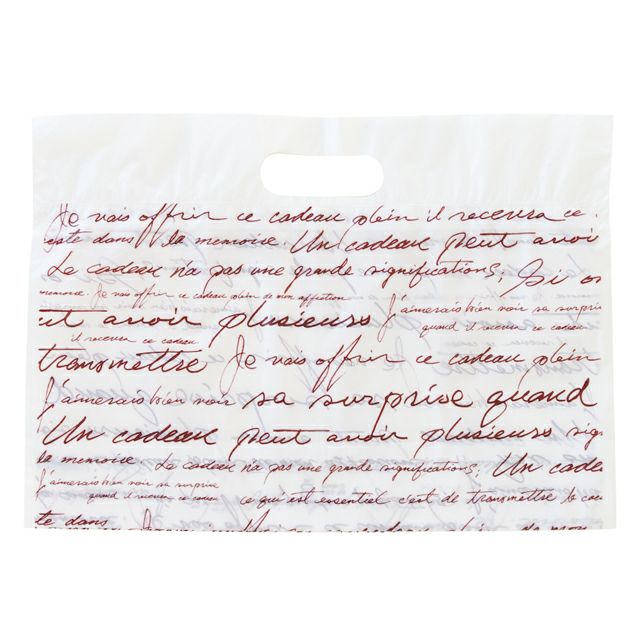 Je vais offrir ce cadeau plein il recevra ce
este dans la memoire. Un cadeau peut avoi
Le cadeau n'a pas une grande significations, Si on
memoire Je vais offrir ce cadeau plein de mon affection
J'aimerais bien voir sa surpris
ut avoir plusieurs
quand il recevra ce cadeau
il recevra ce cadeau
transmettre Je vais offrir ce cadeau plein
J'aimerais bien voir sa surprise quand
Un cadeau peut avoir plusieurs sig
la memoire. Le cadeau n'a pas une grande significations, Un cade
J'aimerais bien voir sa surprise
quand il recevra ce cadeau ce qui est essentiel c'est de transmettre le coeu
te dans de mon